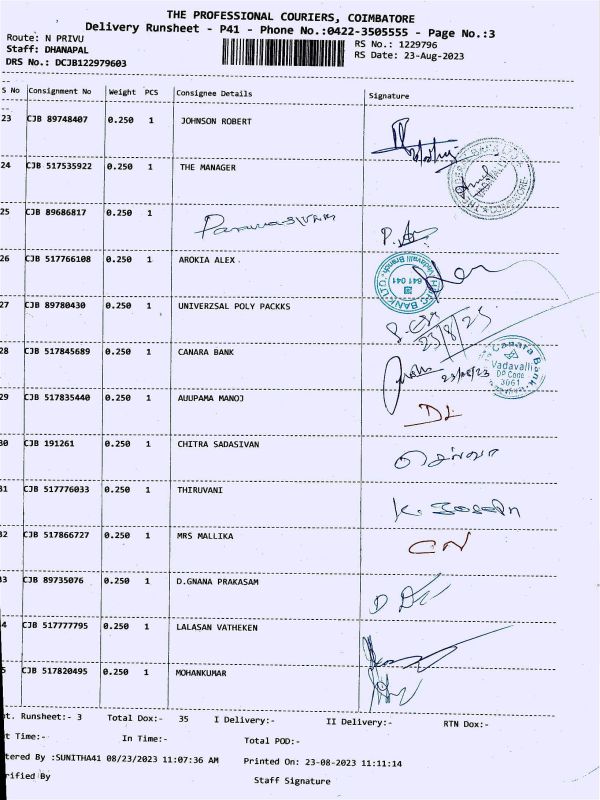 THE PROFESSIONAL COURIERS, COIMBATORE
Delivery Runsheet - P41 - Phone No.:0422-3505555 - Page No.:3
Route: N PRIVU
RS No.: 1229796
Staff: DHANAPAL
RS Date: 23-Aug-2023
DRS No.: DCJB122979603
S No Consignment No Weight PCS Consignee Details Signature
23 CJB 89748407 0.250 1 JOHNSON ROBERT
24 CJB 517535922 0.250 1 THE MANAGER
25 CJB 89686817 0.250 1
26 CJB 517766108 0.250 1 AROKIA ALEX
Vadavalli Branch
641 041
27 CJB 89780430 0.250 1 UNIVERZSAL POLY PACKKS
23/8/23
28 CJB 517845689 0.250 1 CANARA BANK
23/08/23
Canara Bank
Vadavalli
DP Code
3061
29 CJB 517835440 0.250 1 AUUPAMA MANOJ
30 CJB 191261 0.250 1 CHITRA SADASIVAN
செல்வா
31 CJB 517776033 0.250 1 THIRUVANI
32 CJB 517866727 0.250 1 MRS MALLIKA
CN
33 CJB 89735076 0.250 1 D.GNANA PRAKASAM
4 CJB 517777795 0.250 1 LALASAN VATHEKEN
5 CJB 517820495 0.250 1 MOHANKUMAR
nt. Runsheet:- 3 Total Dox:- 35 I Delivery:- II Delivery:- RTN Dox:-
t Time:- In Time:- Total POD:-
tered By :SUNITHA41 08/23/2023 11:07:36 AM Printed On: 23-08-2023 11:11:14
rified By Staff Signature